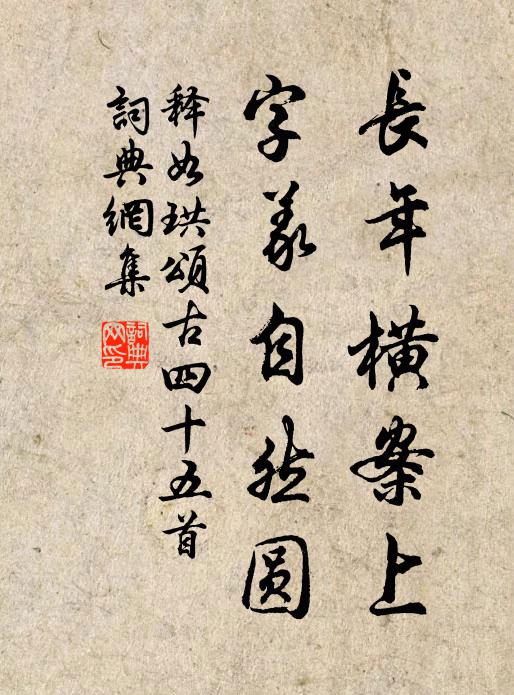 長年橫案上
字義自然圓
释如珙頌古四十五首
詞典網集
詞典网印